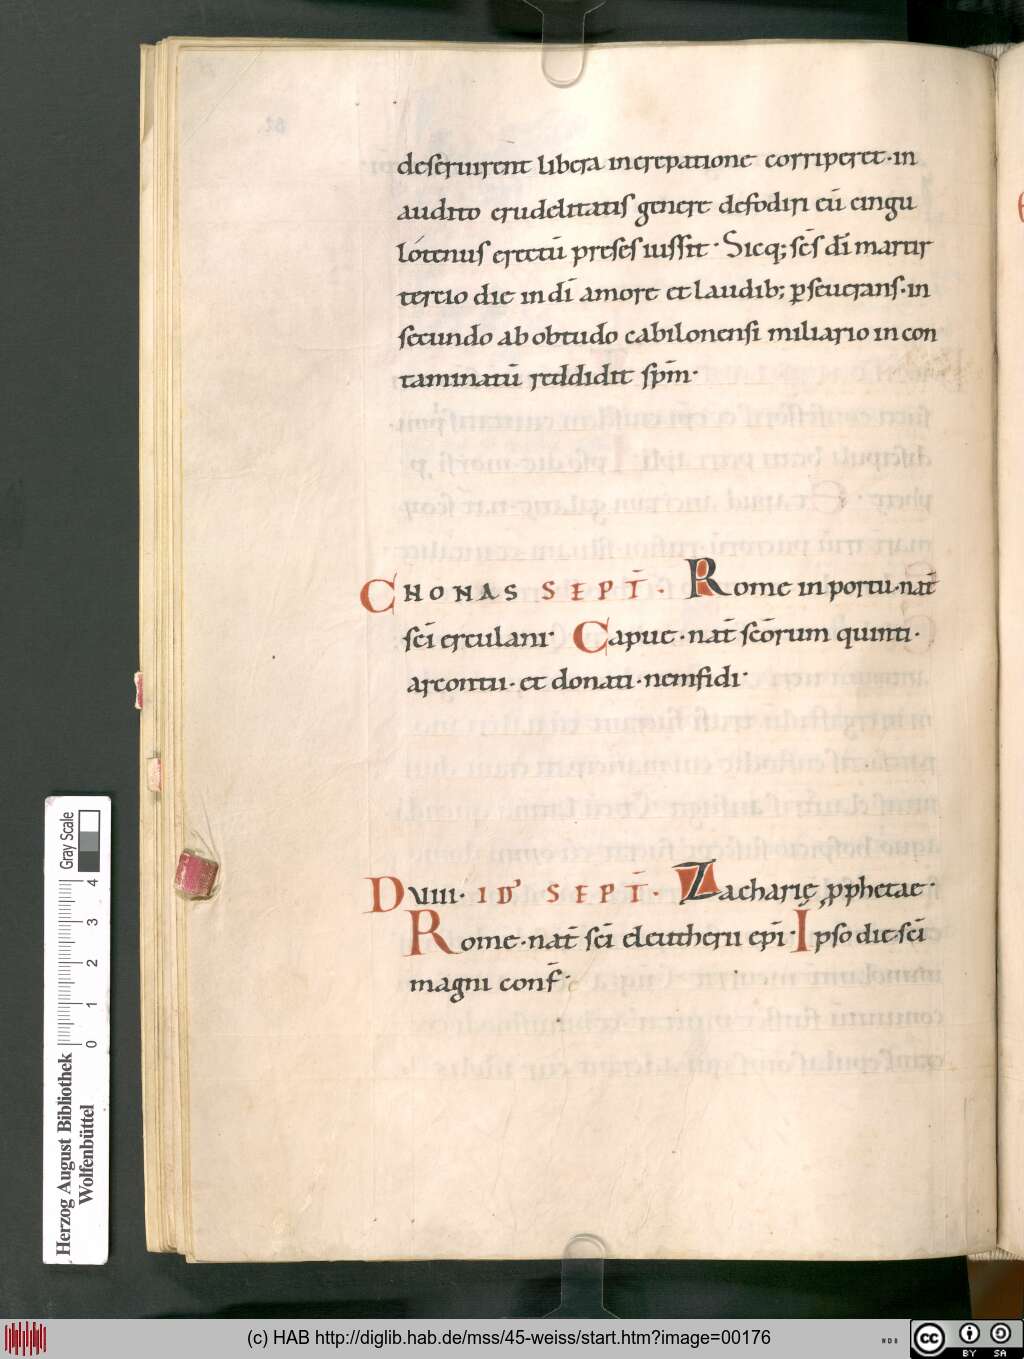 deseruirent libera increpatione corriperet · in
audito crudelitatis genere defodiri cū cingu
lótenus erectū preses iussit · Sicq; scs dī martir
tercio die in dī amore et laudib; pseuerans · in
secundo ab obtudo cabilonensi miliario in con
taminatū reddidit spm̄ ·
C NONAS SEPT̄ · Rome in portu · nat̄
sc̄i erculani · Capue · nat̄ scōrum quinti ·
arcontii · et donati · nemfidi ·
D VIII · ID' SEPT̄ · Zacharię pphetae ·
Rome · nat̄ sc̄i eleutherii ep̄i · Ipso die sc̄i
magni conf̄ ·
Herzog August Bibliothek
Wolfenbüttel
0 1 2 3 4
Gray Scale
(c) HAB http://diglib.hab.de/mss/45-weiss/start.htm?image=00176
WDB
cc BY SA